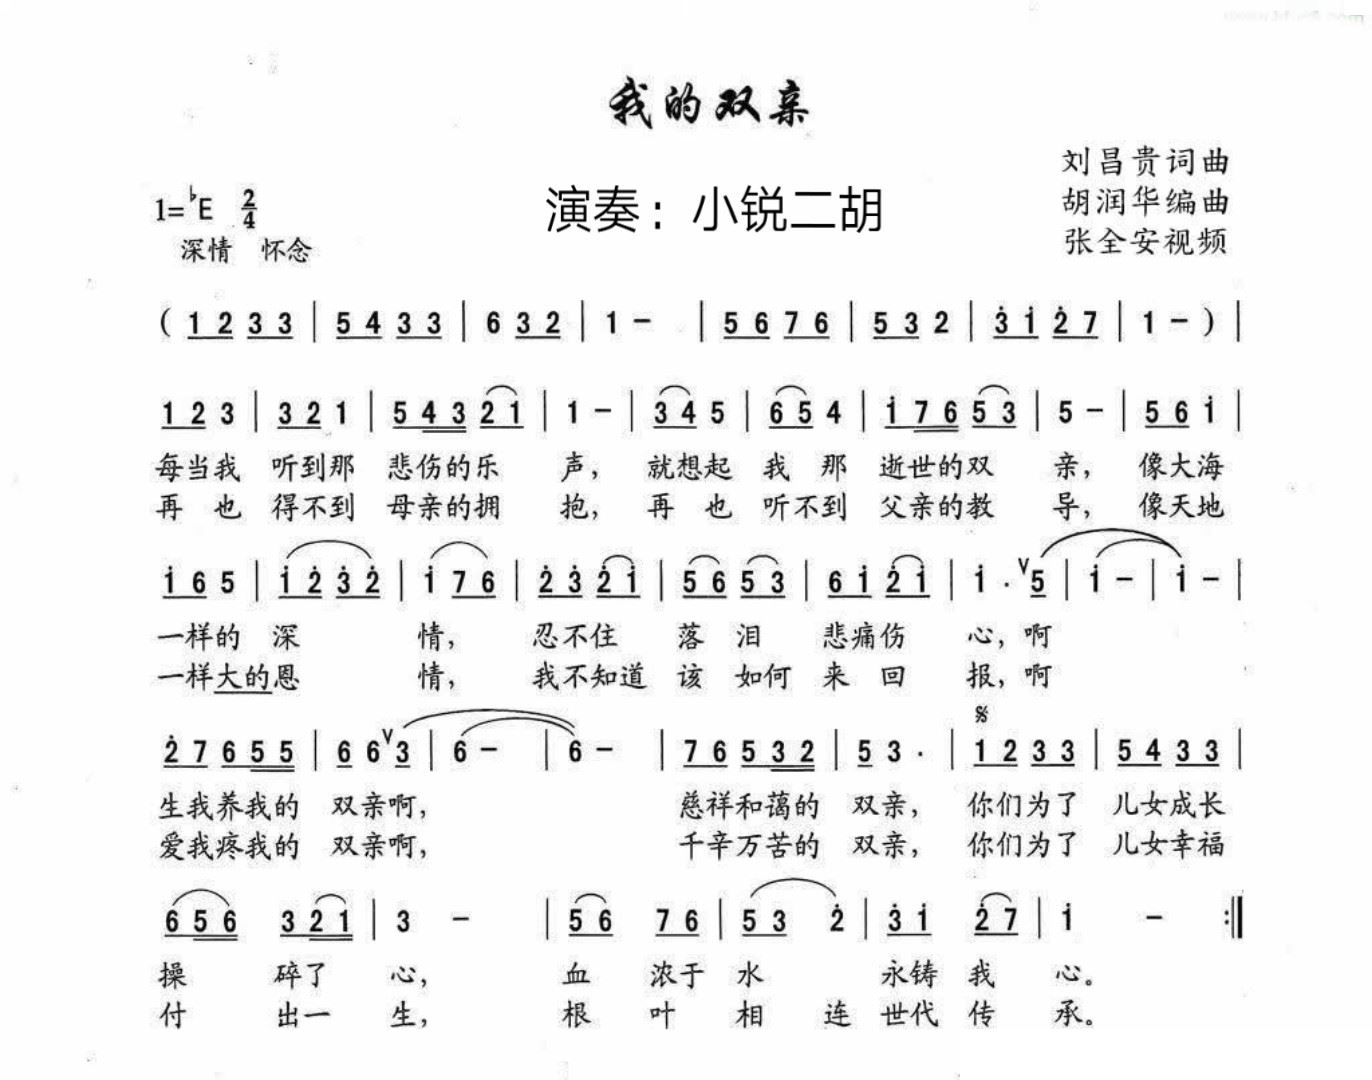 我的双亲
刘昌贵词曲
1=♭E 2/4 演奏：小锐二胡 胡润华编曲
深情 怀念 张全安视频
( 1 2 3 3 | 5 4 3 3 | 6 3 2 | 1 - | 5 6 7 6 | 5 3 2 | 3̇ 1̇ 2̇ 7 | 1 - ) |
1 2 3 | 3 2 1 | 5 4 3 2 1 | 1 - | 3 4 5 | 6 5 4 | 1̇ 7 6 5 3 | 5 - | 5 6 1̇ |
每当我 听到那 悲伤的乐 声， 就想起 我 那 逝世的双 亲， 像大海
再 也 得不到 母亲的拥 抱， 再 也 听不到 父亲的教 导， 像天地
1̇ 6 5 | 1̇ 2̇ 3̇ 2̇ | 1̇ 7 6 | 2̇ 3̇ 2̇ 1̇ | 5 6 5 3 | 6 1̇ 2̇ 1̇ | 1̇ · ∨ 5 | 1̇ - | 1̇ - |
一样的 深 情， 忍不住 落 泪 悲痛伤 心，啊
一样大的恩 情， 我不知道 该 如何 来 回 报，啊
𝄋
2̇ 7 6 5 5 | 6 6 ∨ 3 | 6 - | 6 - | 7 6 5 3 2 | 5 3 · | 1 2 3 3 | 5 4 3 3 |
生我养我的 双亲啊， 慈祥和蔼的 双亲， 你们为了 儿女成长
爱我疼我的 双亲啊， 千辛万苦的 双亲， 你们为了 儿女幸福
6 5 6 3 2 1 | 3 - | 5 6 7 6 | 5 3 2̇ | 3̇ 1̇ 2̇ 7 | 1̇ - :‖
操 碎了 心， 血 浓于 水 永铸 我 心。
付 出一 生， 根 叶 相 连 世代 传 承。